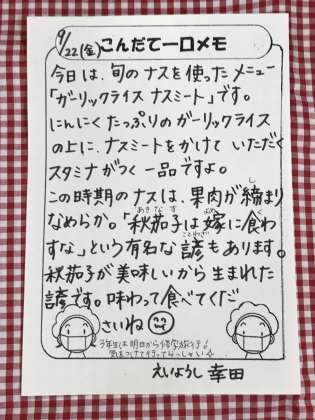 9/22(金)こんだて一口メモ
今日は、旬のナスを使ったメニュー
「ガーリックライス ナスミート」です。
にんにくたっぷりのガーリックライス
の上に、ナスミートをかけていただく
スタミナがつく一品ですよ。
この時期のナスは、果肉が締まり
なめらか。「秋茄子は嫁に食わ
すな」という有名な諺もあります。
秋茄子が美味しいから生まれた
諺です。味わって食べてくだ
さいね
3年生は明日から修学旅行♪
気をつけて行ってらっしゃい☆
えいようし 幸田